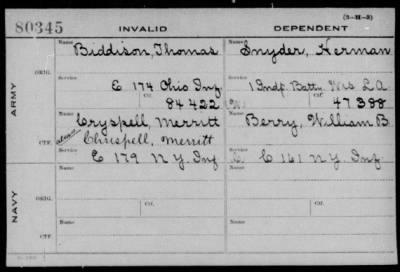 80345 INVALID DEPENDENT (3-H-3)
ARMY
ORIG.
Name Biddison, Thomas
Service E 174 Ohio Inf
Ctf. 84422
Name Snyder, Herman
Service 1 Indp. Batty. Wis L.A.
Ctf. 47388
CTF.
Name Cryspell, Merritt
alias Chrispell, Merritt
Service E 179 N.Y. Inf
Name Berry, William B
Service C 161 N.Y. Inf.
NAVY
ORIG.
Name
Ctf.
Name
Ctf.
CTF.
Name
Name